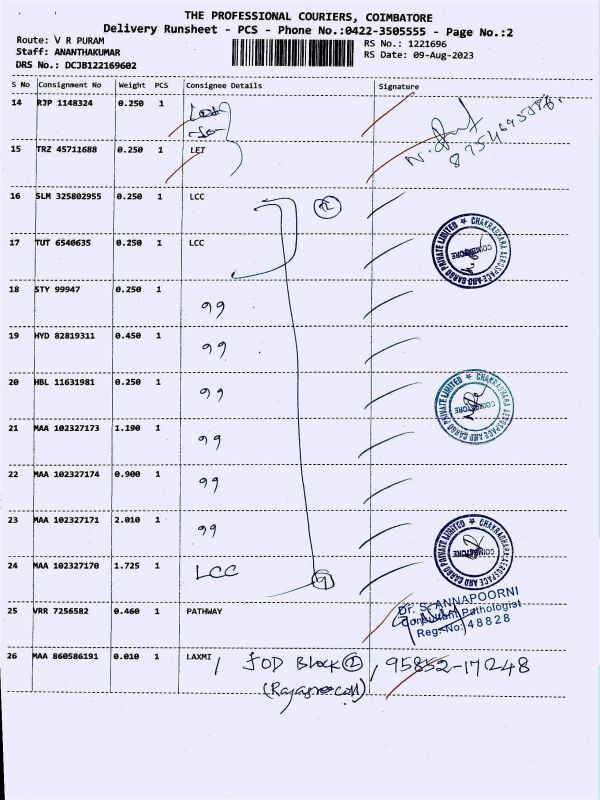 THE PROFESSIONAL COURIERS, COIMBATORE
Delivery Runsheet - PCS - Phone No.:0422-3505555 - Page No.:2
Route: V R PURAM
Staff: ANANTHAKUMAR
DRS No.: DCJB122169602
RS No.: 1221696
RS Date: 09-Aug-2023
S No Consignment No Weight PCS Consignee Details Signature
14 RJP 1148324 0.250 1
15 TRZ 45711688 0.250 1 LET
16 SLM 325802955 0.250 1 LCC
17 TUT 6540635 0.250 1 LCC
18 STY 99947 0.250 1 99
19 HYD 82819311 0.450 1 99
20 HBL 11631981 0.250 1 99
21 MAA 102327173 1.190 1 99
22 MAA 102327174 0.900 1 99
23 MAA 102327171 2.010 1 99
24 MAA 102327170 1.725 1 LCC 9
25 VRR 7256582 0.460 1 PATHWAY
Dr. S. ANNAPOORNI
Consultant Pathologist
Reg. No: 48828
26 MAA 860586191 0.010 1 LAXMI, JOD Block, 95852-17248
CHAKRADHARA AEROSPACE AND CARGO PRIVATE LIMITED
COIMBATORE
CHAKRADHARA AEROSPACE AND CARGO PRIVATE LIMITED
COIMBATORE
CHAKRADHARA AEROSPACE AND CARGO PRIVATE LIMITED
COIMBATORE